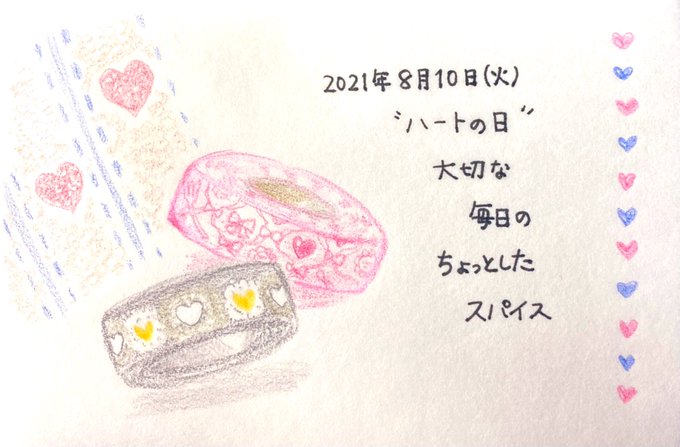 2021年8月10日(火)
"ハートの日"
大切な
毎日の
ちょっとした
スパイス